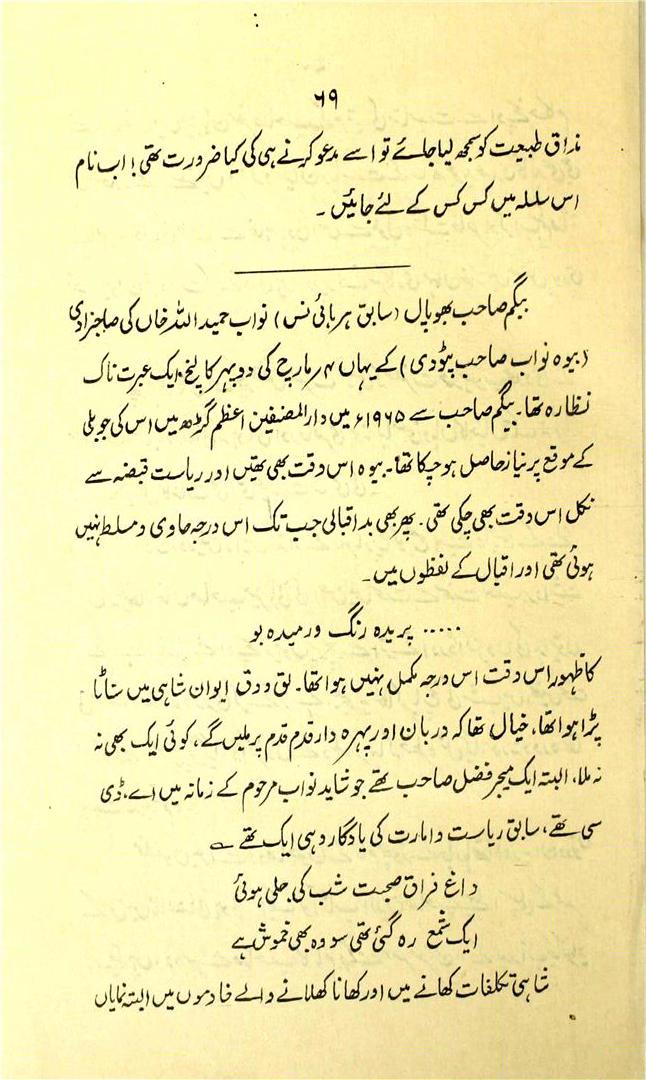 ۶۹
مذاق طبیعت کو سمجھ لیا جائے تو اسے مدعو کرنے ہی کی کیا ضرورت تھی! اب نام
اس سلسلہ میں کس کس کے لئے جائیں ۔
بیگم صاحب بھوپال (سابق ہر ہائی نس) نواب حمید اللہ خاں کی صاحبزادی
(بیوہ نواب صاحب پٹودی) کے یہاں ۴ مارچ کی دوپہر کا لنچ ایک عبرت ناک
نظارہ تھا۔ بیگم صاحب سے ۱۹۶۵ء میں دارالمصنفین اعظم گڑھ میں اس کی جوبلی
کے موقع پر نیاز حاصل ہو چکا تھا۔ بیوہ اس وقت بھی تھیں اور ریاست قبضہ سے
نکل اس وقت بھی چکی تھی۔ پھر بھی بد اقبالی جب تک اس درجہ حاوی و مسلط نہیں
ہوئی تھی اور اقبال کے لفظوں میں۔
..... پریدہ رنگ و رمیدہ بو
کا ظہور اس وقت اس درجہ مکمل نہیں ہوا تھا۔ لق و دق ایوان شاہی میں سناٹا
پڑا ہوا تھا، خیال تھا کہ دربان اور پہرہ دار قدم قدم پر ملیں گے، کوئی ایک بھی نہ
نہ ملا، البتہ ایک میجر فضل صاحب تھے جو شاید نواب مرحوم کے زمانہ میں اے، ڈی
سی تھے، سابق ریاست و امارت کی یادگار وہی ایک تھے ؎
داغ فراق صحبت شب کی جلی ہوئی
ایک شمع رہ گئی تھی سو وہ بھی خموش ہے
شاہی تکلفات کھانے میں اور کھانا کھلانے والے خادموں میں البتہ نمایاں